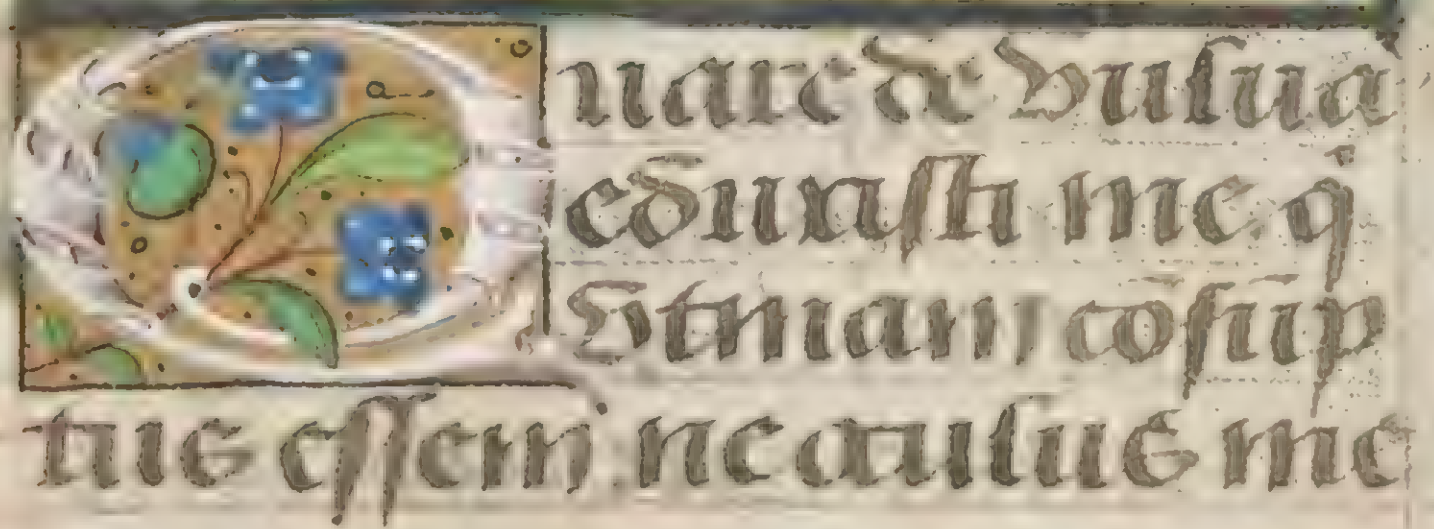 Quare de vulua
eduxisti me qͥ
vtinam cōsūp
tus essem ne oculus me